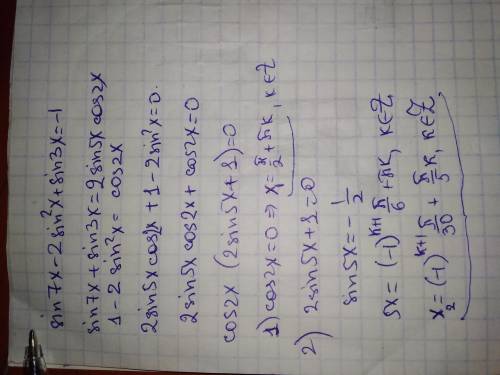 sin7x - 2sin²x + sin3x = -1
sin7x + sin3x = 2sin5x cos2x
1 - 2sin²x = cos2x
2sin5x cos2x + 1 - 2sin²x = 0.
2sin5x cos2x + cos2x = 0
cos2x (2sin5x + 1) = 0
1) cos2x = 0 => x = π/2 + πk, k∈Z
2) 2sin5x + 1 = 0
sin5x = -1/2
5x = (-1)^(k+1) π/6 + πk, k∈Z
x₂ = (-1)^(k+1) π/30 + π/5 k, k∈Z,